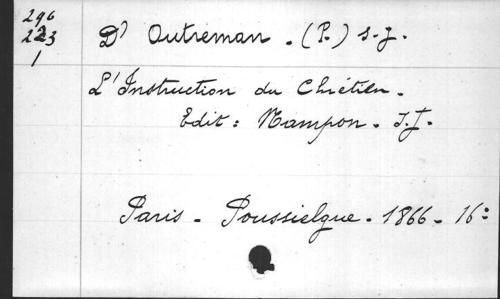 296
223
1
D' Outreman. (P.) s.j.
L'Instruction du Chrétien.
Edit: Nampon. S.J.
Paris - Poussielgue. 1866 - 16: